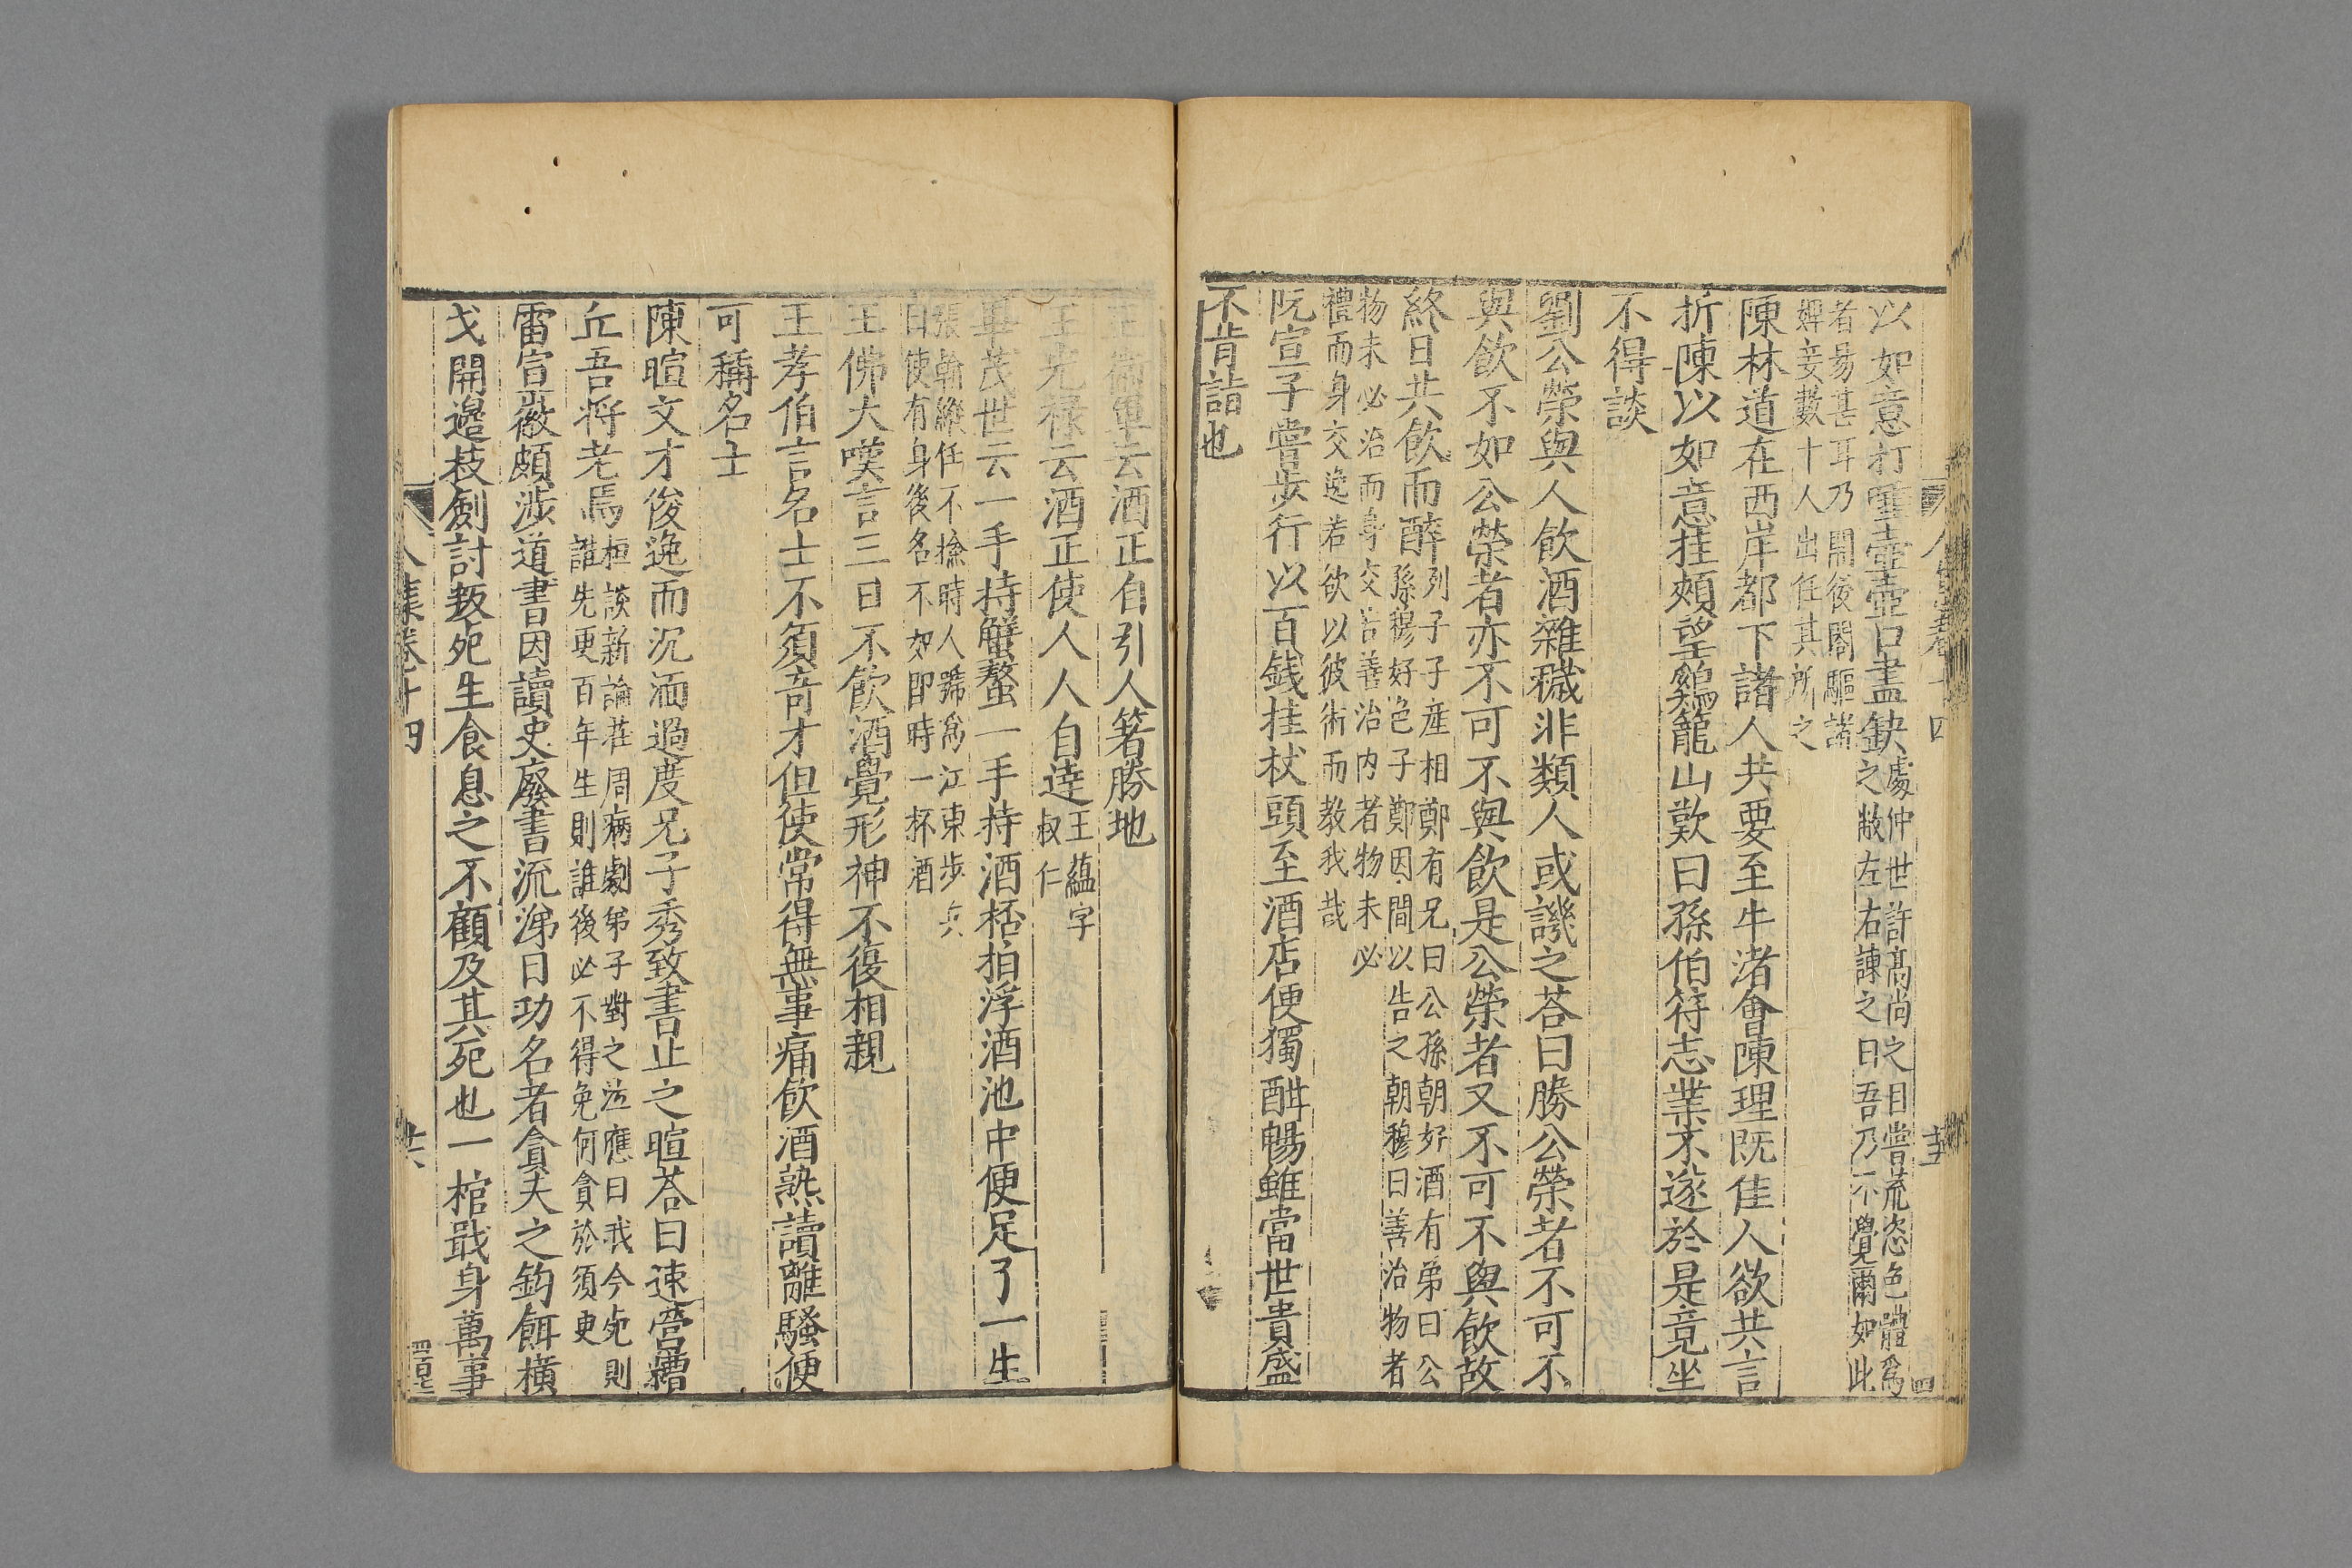 以如意打唾壺壺口盡缺處仲世許高尚之目嘗荒恣色體爲
之敝左右諫之曰吾乃不覺爾如此
者易甚耳乃開後閤驅諸
婢妾數十人出任其所之
陳林道在西岸都下諸人共要至牛渚會陳理既佳人欲共言
折陳以如意拄頰望鷄籠山歎曰孫伯符志業不遂於是竟坐
不得談
劉公榮與人飲酒雜穢非類人或譏之荅曰勝公榮者不可不
與飲不如公榮者亦不可不與飲是公榮者又不可不與飲故
終日共飲而醉列子子産相鄭有兄曰公孫朝好酒有弟曰公
孫穆好色子鄭因間以告之朝穆曰善治物者
物未必治而身交苦善治内者物未必
禮而身交逸若欲以彼術而教我哉
阮宣子嘗步行以百錢挂杖頭至酒店便獨酣暢雖當世貴盛
不肯詣也
王衞軍云酒正自引人著勝地
王光祿云酒正使人人自逹王蘊字
叔仁
畢茂世云一手持蟹螯一手持酒桮拍浮酒池中便足了一生
張翰縱任不拘時人號爲江東步兵
曰使有身後名不如即時一杯酒
王佛大嘆言三日不飲酒覺形神不復相親
王孝伯言名士不須奇才但使常得無事痛飲酒熟讀離騷便
可稱名士
陳暄文才俊逸而沉湎過度兄子秀致書止之暄荅曰速營糟
丘吾将老焉桓談新論莊周病劇弟子對之泣應曰我今死則
誰先更百年生則誰後必不得免何貪於須臾
雷宣徽頗涉道書因讀史廢書流涕曰功名者貪夫之鉤餌横
戈開邊枝劍討叛死生食息之不顧及其死也一棺戢身萬事
卷十四